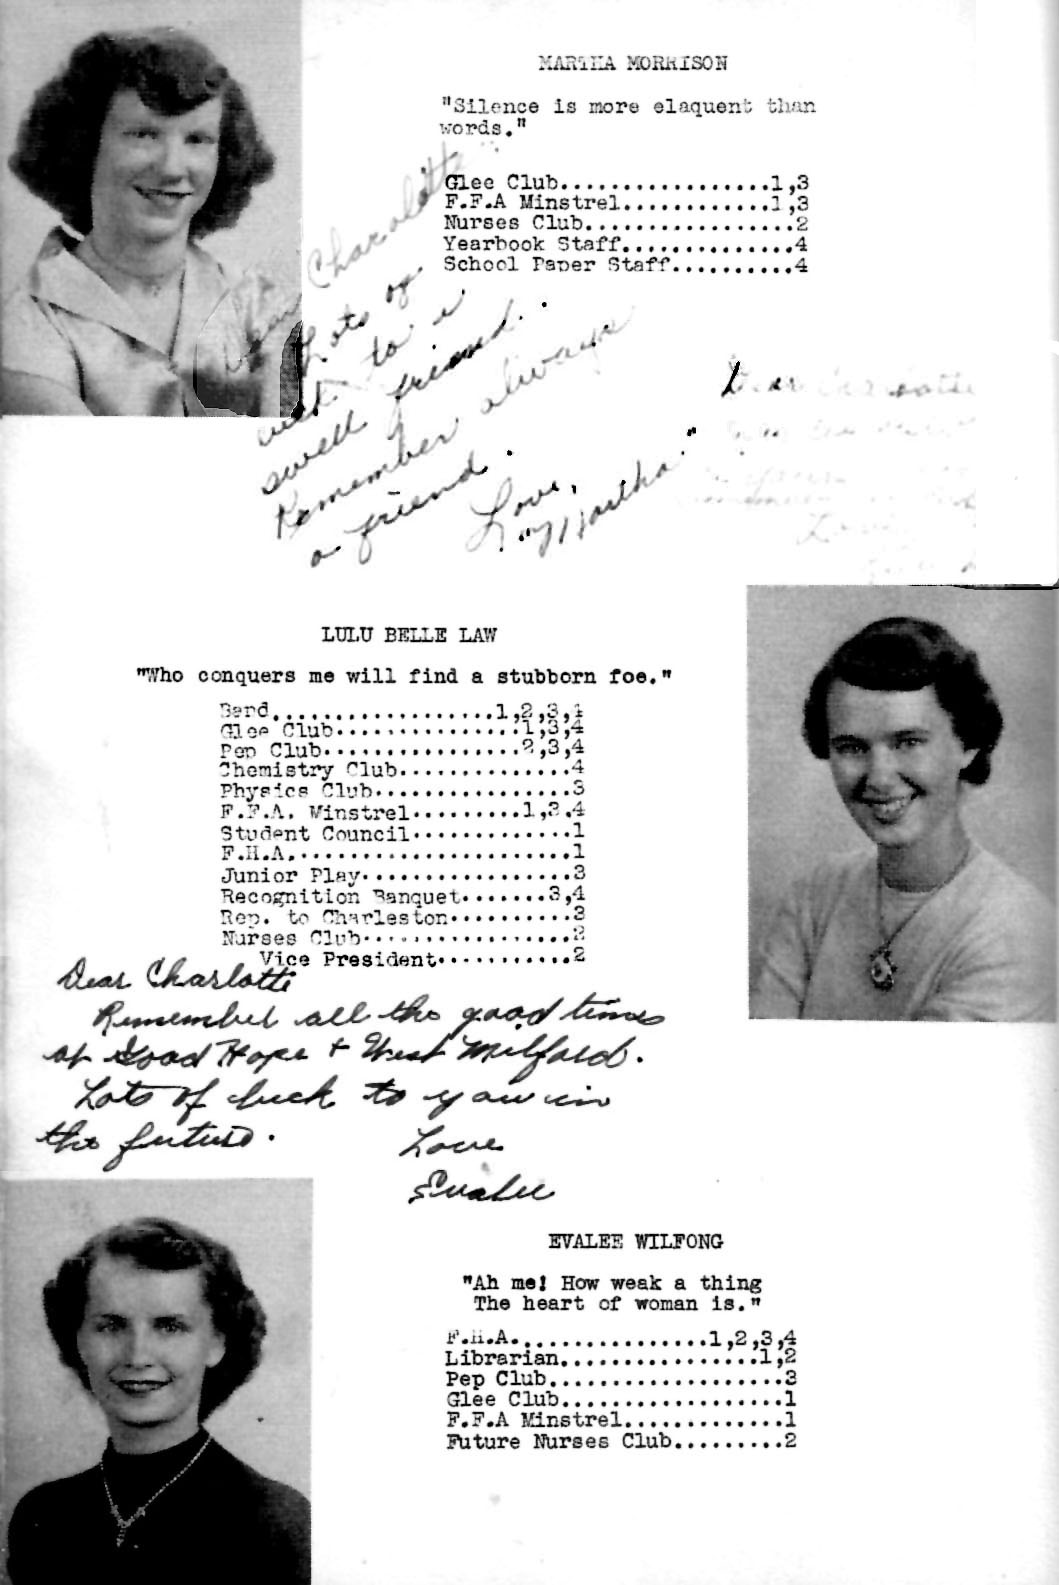 MARTHA MORRISON
"Silence is more elaquent than
words."
Glee Club..................1,3
F.F.A Minstrel............1,3
Nurses Club.................2
Yearbook Staff.............4
School Paper Staff..........4
Dear Charolotte
Lots of
luck to a
swell friend.
Remember always
a friend.
Love,
"Martha"
Dear Charlotte
Love
LULU BELLE LAW
"Who conquers me will find a stubborn foe."
Band..................1,2,3,4
Glee Club...............1,3,4
Pep Club................2,3,4
Chemistry Club..............4
Physics Club................3
F.F.A. Minstrel.........1,3,4
Student Council.............1
F.H.A.......................1
Junior Play.................3
Recognition Banquet.......3,4
Rep. to Charleston..........3
Nurses Club.................2
Vice President...........2
Dear Charlotte
Remember all the good times
at Good Hope + West Milford.
Lots of luck to you in
the future.
Love
Evalee
EVALEE WILFONG
"Ah me! How weak a thing
The heart of woman is."
F.H.A................1,2,3,4
Librarian................1,2
Pep Club...................3
Glee Club..................1
F.F.A Minstrel.............1
Future Nurses Club.........2